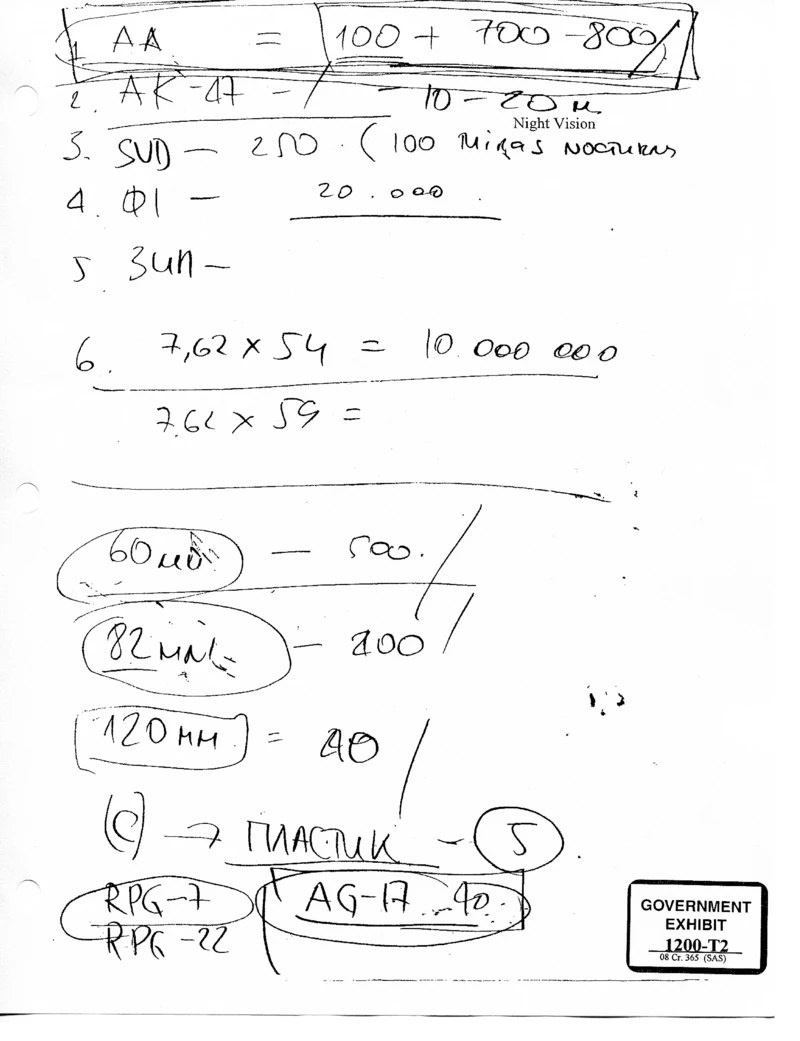 1. AA = 100 + 700-800
2. AK-47 - - 10-20 м
Night Vision
3. SVD - 250 (100 Miras NOCTURNAS
4. Ф1 - 20.000
5 ЗИП -
6. 7,62 x 54 = 10 000 000
7.62 x 59 =
60мм - 500.
82мм - 200
120мм = 40
(C) → ПЛАСТИК - 5
RPG-7 AG-17 40
RPG-22
GOVERNMENT
EXHIBIT
1200-T2
08 Cr. 365 (SAS)